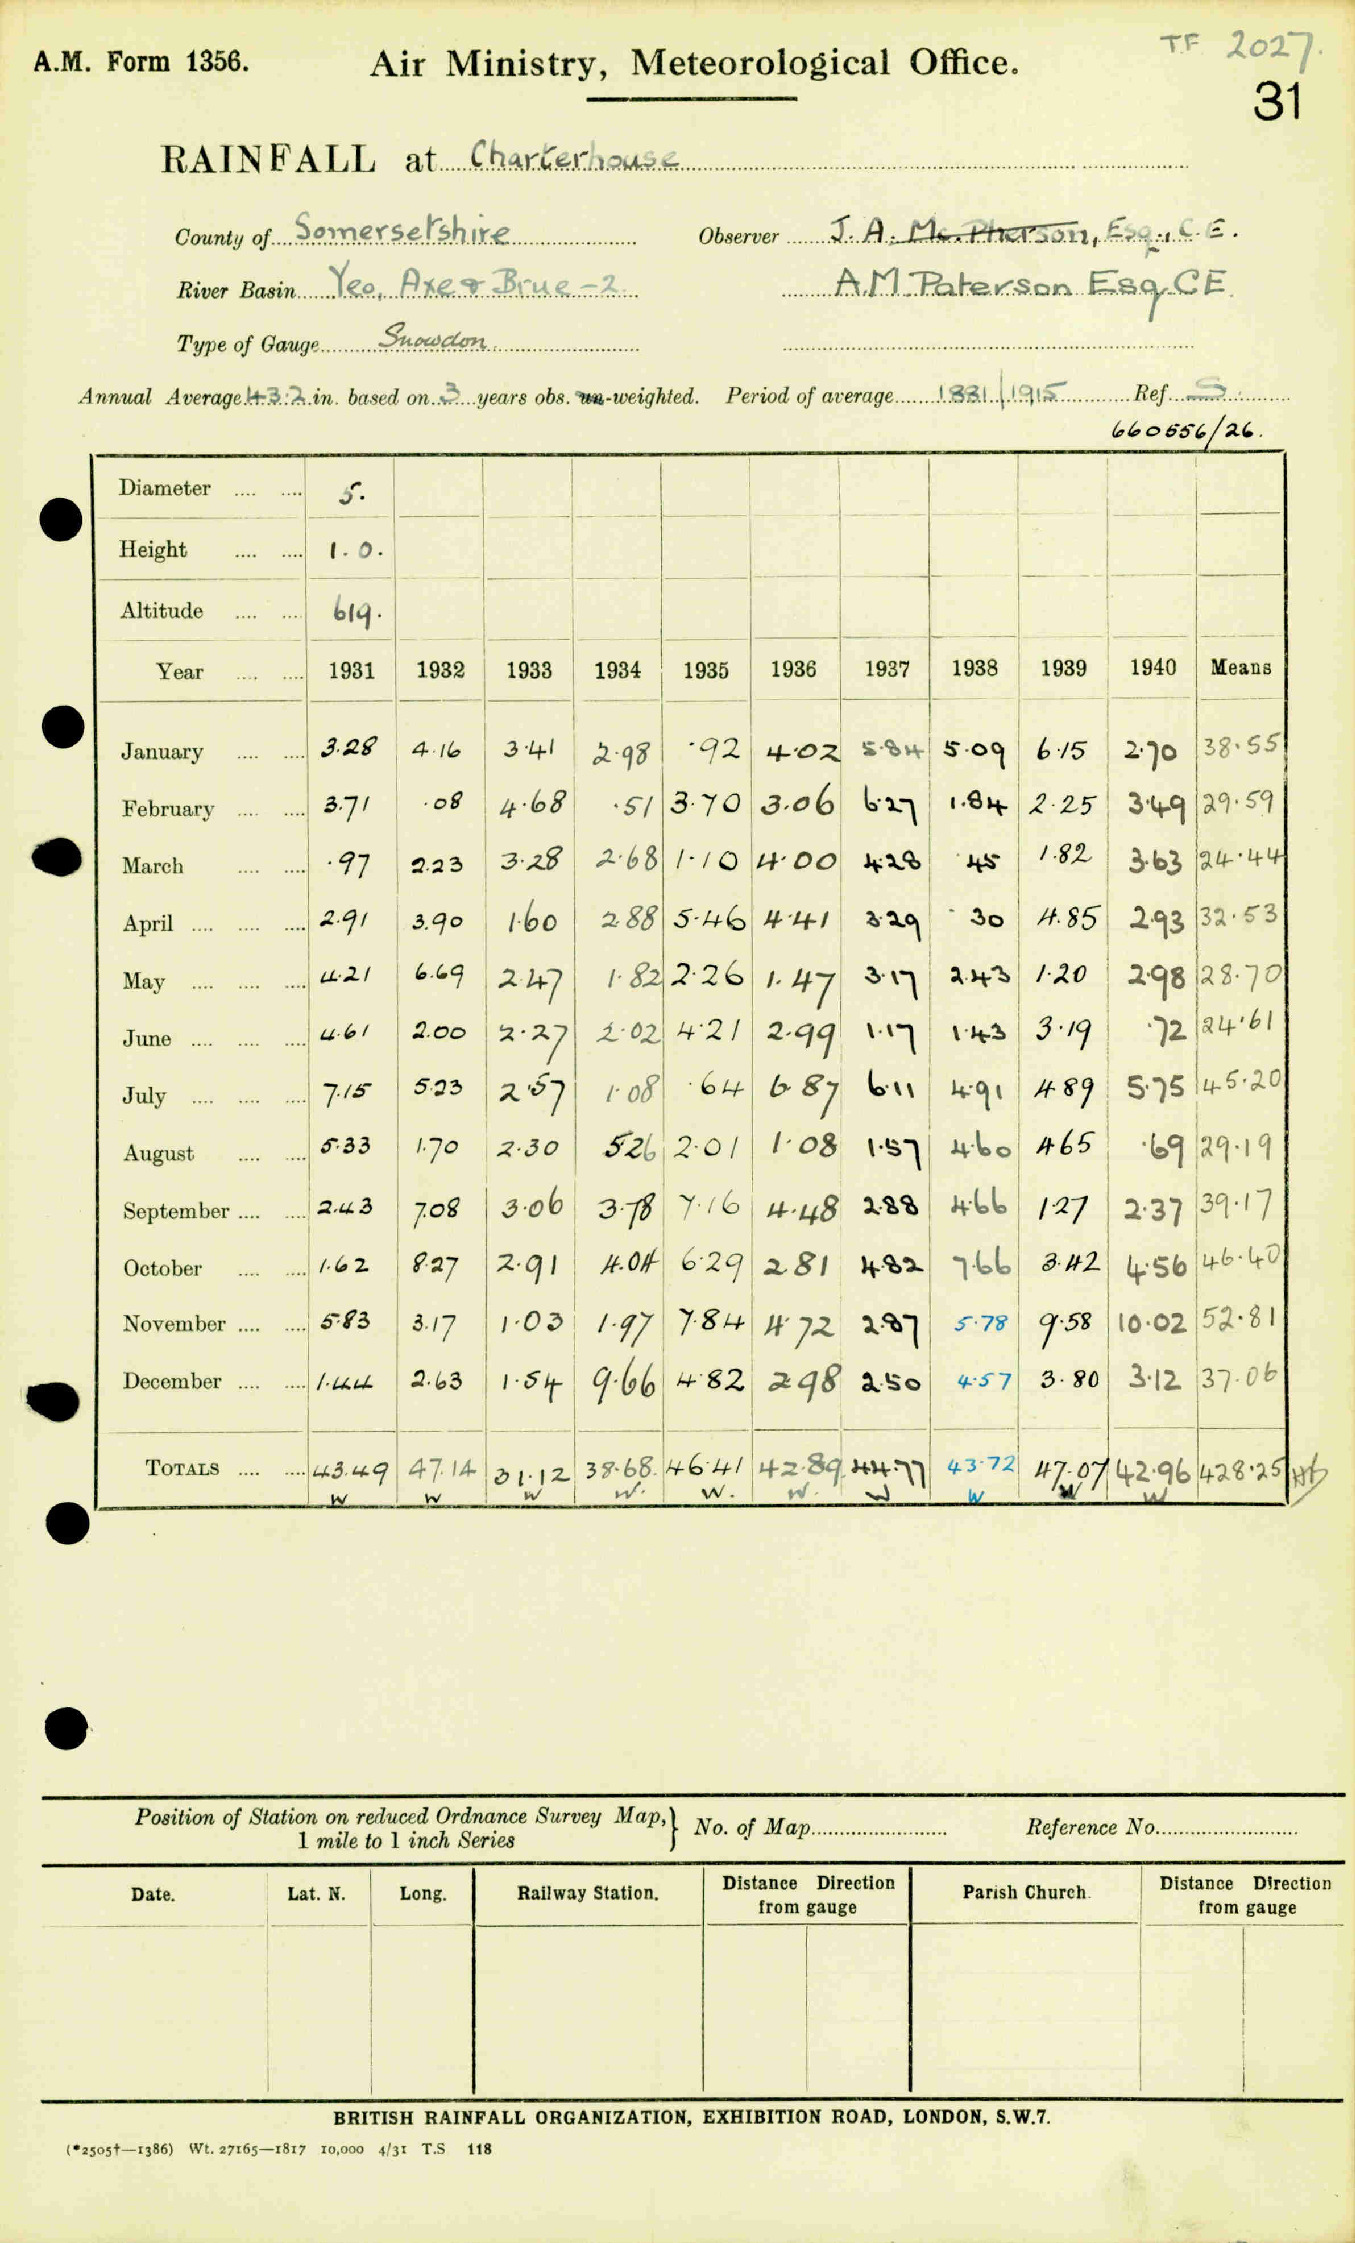 TF 2027.
A.M. Form 1356. Air Ministry, Meteorological Office.
31
RAINFALL at Charterhouse
County of Somersetshire Observer J. A. Mc. Pherson, Esq., C.E.
River Basin Yeo, Axe & Brue -2 A.M. Paterson Esq CE.
Type of Gauge Snowdon
Annual Average 43.2 in. based on 3 years obs. un-weighted. Period of average 1881/1915 Ref. S.
660556/26.
Diameter .... .... 5.
Height .... .... 1.0.
Altitude .... .... 619.
Year .... .... 1931 1932 1933 1934 1935 1936 1937 1938 1939 1940 Means
January .... .... 3.28 4.16 3.41 2.98 .92 4.02 5.84 5.09 6.15 2.70 38.55
February .... .... 3.71 .08 4.68 .51 3.70 3.06 6.27 1.84 2.25 3.49 29.59
March .... .... .97 2.23 3.28 2.68 1.10 4.00 4.28 .45 1.82 3.63 24.44
April .... .... .... 2.91 3.90 1.60 2.88 5.46 4.41 3.29 .30 4.85 2.93 32.53
May .... .... .... 4.21 6.69 2.47 1.82 2.26 1.47 3.17 2.43 1.20 2.98 28.70
June .... .... .... 4.61 2.00 2.27 2.02 4.21 2.99 1.17 1.43 3.19 .72 24.61
July .... .... .... 7.15 5.23 2.57 1.08 .64 6.87 6.11 4.91 4.89 5.75 45.20
August .... .... 5.33 1.70 2.30 5.26 2.01 1.08 1.57 4.60 4.65 .69 29.19
September .... .... 2.43 7.08 3.06 3.78 7.16 4.48 2.88 4.66 1.27 2.37 39.17
October .... .... 1.62 8.27 2.91 4.04 6.29 2.81 4.82 7.66 3.42 4.56 46.40
November .... .... 5.83 3.17 1.03 1.97 7.84 4.72 2.87 5.78 9.58 10.02 52.81
December .... .... 1.44 2.63 1.54 9.66 4.82 2.98 2.50 4.57 3.80 3.12 37.06
TOTALS .... .... 43.49 47.14 31.12 38.68 46.41 42.89 44.77 43.72 47.07 42.96 428.25
W W W W. W. W. W W W W
Position of Station on reduced Ordnance Survey Map, } No. of Map Reference No.
1 mile to 1 inch Series
Date. Lat. N. Long. Railway Station. Distance Direction Parish Church. Distance Direction
from gauge from gauge
BRITISH RAINFALL ORGANIZATION, EXHIBITION ROAD, LONDON, S.W.7.
(*2505†—1386) Wt. 27165—1817 10,000 4/31 T.S 118